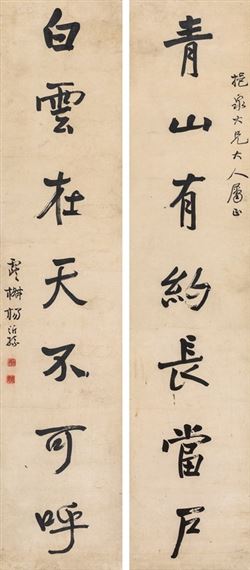 挹泉大兄大人屬正
青山有約長當戶
白雲在天不可呼
楊沂孫